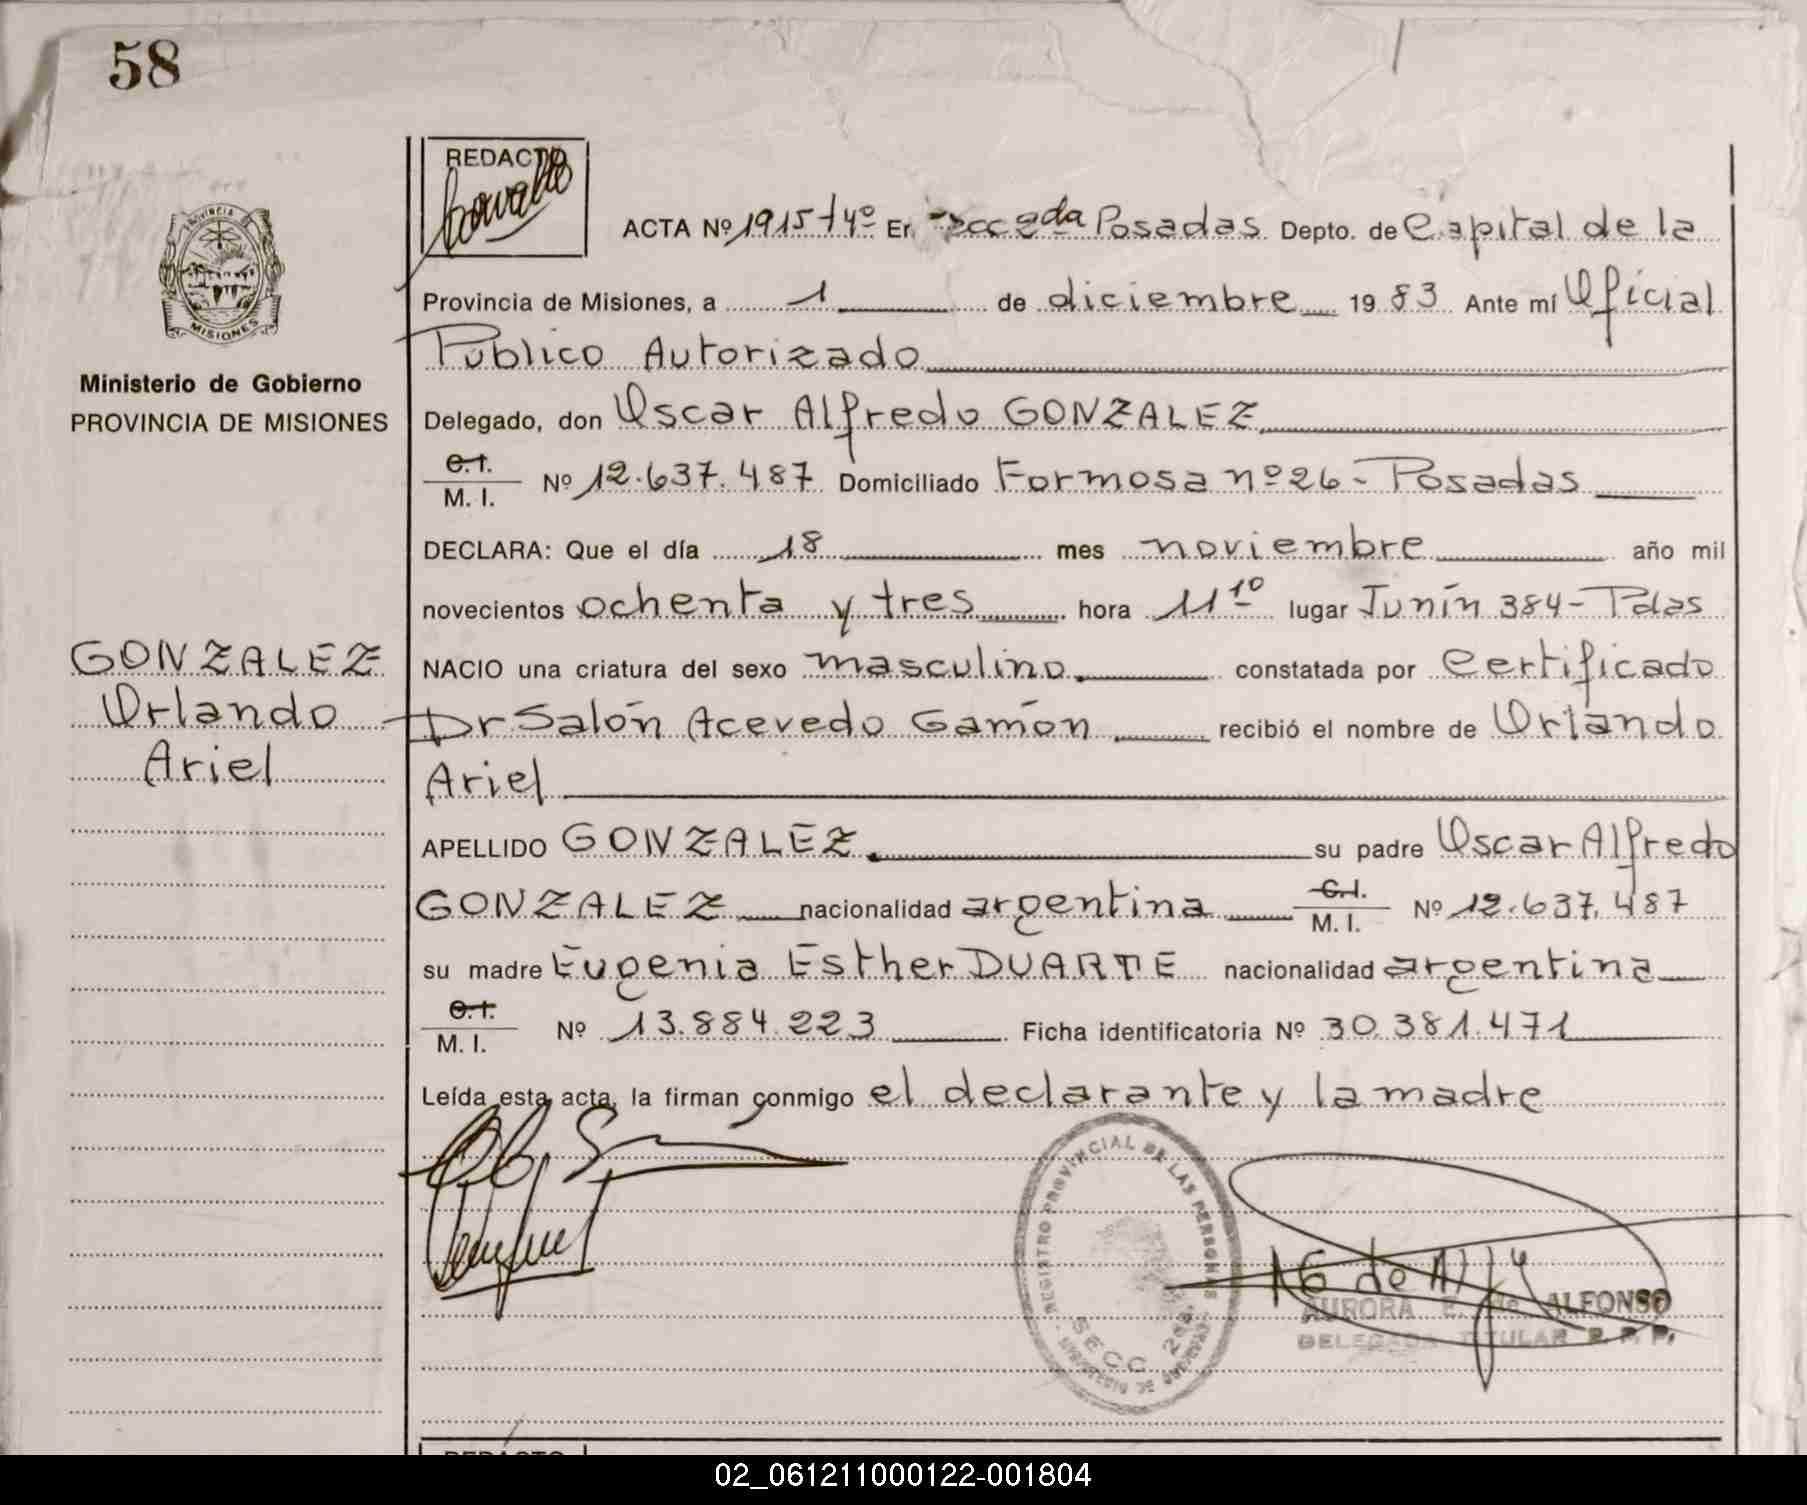 58
REDACTO
ACTA Nº 1915 t4º En Secc 2da Posadas Depto. de Capital de la
Provincia de Misiones, a 1 de diciembre 1983 Ante mí Oficial
Público Autorizado
Ministerio de Gobierno
PROVINCIA DE MISIONES
Delegado, don Oscar Alfredo GONZALEZ
C.I. M. I. Nº 12.637.487 Domiciliado Formosa nº 26 - Posadas
DECLARA: Que el día 18 mes noviembre año mil
novecientos ochenta y tres hora 11 10 lugar Junín 384 - Pdas
GONZALEZ
Orlando
Ariel
NACIO una criatura del sexo masculino constatada por Certificado
Dr Salón Acevedo Gamón recibió el nombre de Orlando
Ariel
APELLIDO GONZALEZ su padre Oscar Alfredo
GONZALEZ nacionalidad argentina C.I. M. I. Nº 12.637.487
su madre Eugenia Esther DUARTE nacionalidad argentina
C.I. M. I. Nº 13.884.223 Ficha identificatoria Nº 30.381.471
Leída esta acta, la firman conmigo el declarante y la madre
REGISTRO PROVINCIAL DE LAS PERSONAS
SECC 2da.
AURORA E. de ALFONSO
DELEGADA TITULAR R. P. P.
REDACTO
02_061211000122-001804